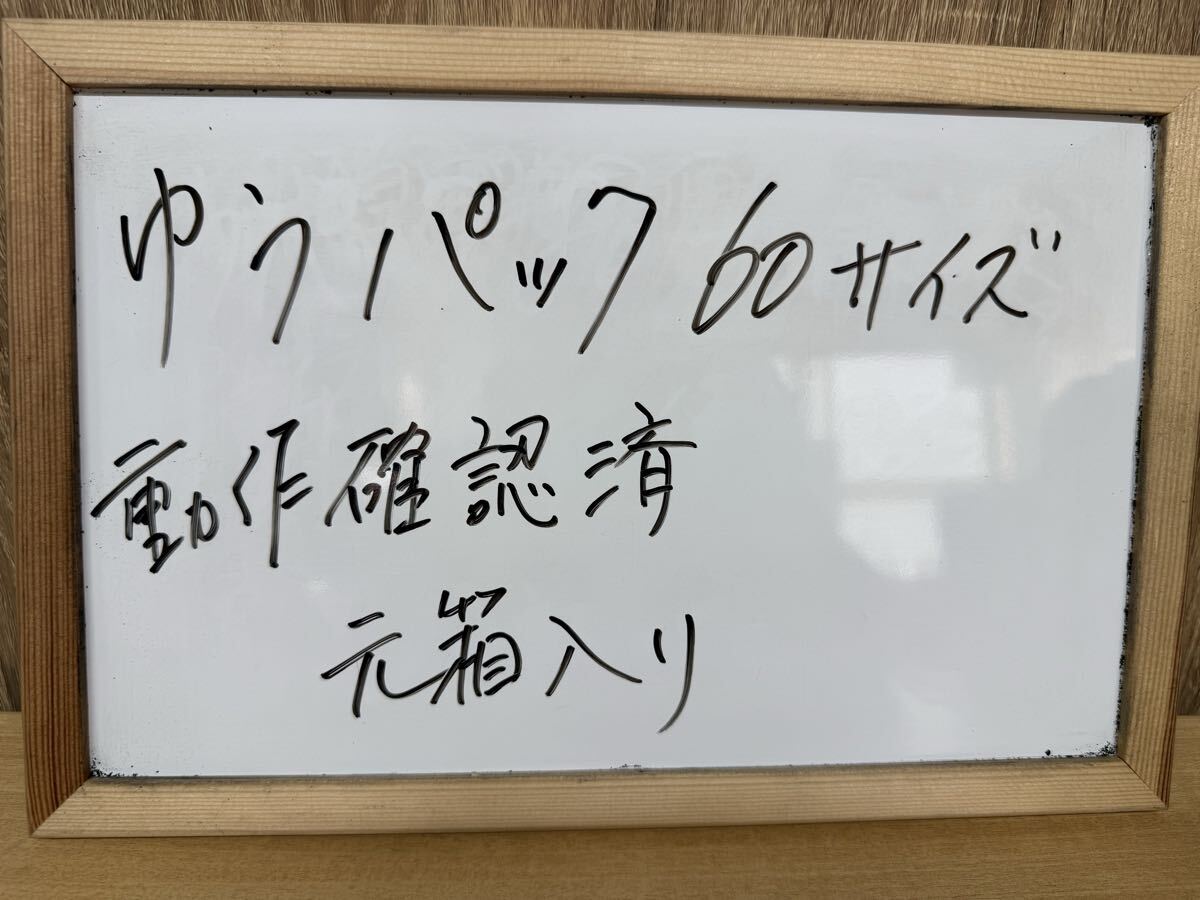 ゆうパック60サイズ
動作確認済
元箱入り